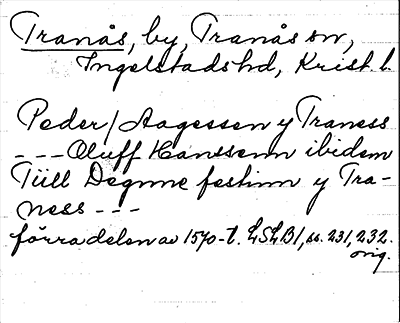 Tranås, by, Tranås sn,
Ingelstads hd, Krist. l.
Peder / Aagessen y Traness
--- Oluff Hanssenn ibidem
Tiill Degnne festinn y Tra-
ness ---
förra delen av 1570-t. LSLB 1, ss. 231, 232.
orig.